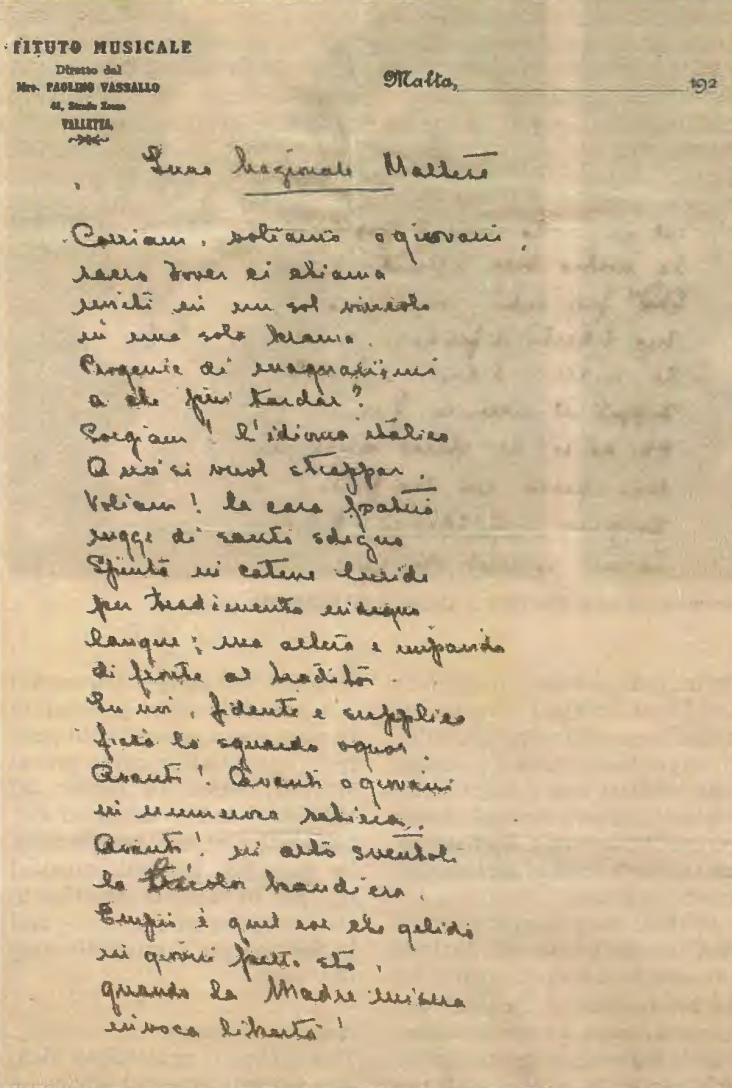 TITUTO MUSICALE
Diretto dal
Mro. PAOLINO VASSALLO
Strada Zecca
VALLETTA
Malta, 192
Inno Nazionale Maltese
Corriam, voliamo o giovani,
sacro dover ci chiama
uniti in un sol vincolo
in una sola brama.
Progenie di magnanimi
a che più tardar?
Sorgiam! l'idioma italico
A noi si vuol strappar.
Voliam! la cara patria
rugge di santo sdegno
Spinta in catene luride
per tradimento indegno
langue; ma altera e impavida
di fronte al traditor.
In noi, fidente e supplice
fissa lo sguardo ognor.
Avanti! Avanti o giovani
in numerosa schiera,
Avanti! in alto sventoli
la tricolor bandiera.
Empio è quel cor che gelido
in giovin petto sta,
quando la Madre misera
invoca libertà!